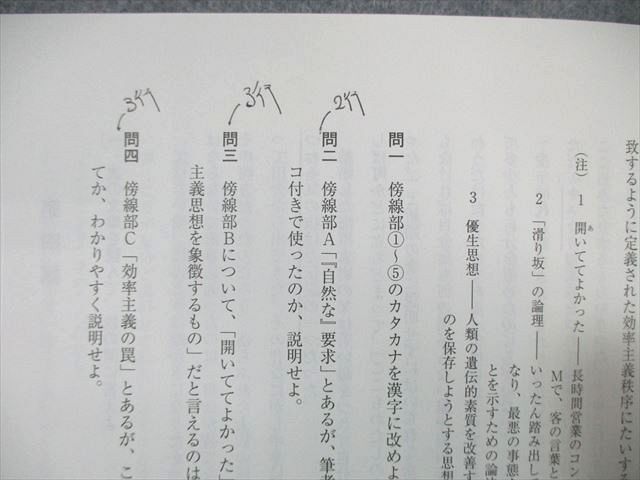 致するように定義された効率主義秩序にたいする
（注） 1 開いててよかった――長時間営業のコン
あ
Mで、客の言葉と
2 「滑り坂」の論理――いったん踏み出して
なり、最悪の事態
とを示すための論
3 優生思想――人類の遺伝的素質を改善す
のを保存しようとする思想
問一 傍線部①～⑤のカタカナを漢字に改めよ
2行
問二 傍線部A「『自然な』要求」とあるが、筆者
コ付きで使ったのか、説明せよ。
3行
問三 傍線部Bについて、「開いててよかった」
主義思想を象徴するもの」だと言えるのは
3行
問四 傍線部C「効率主義の罠」とあるが、こ
てか、わかりやすく説明せよ。